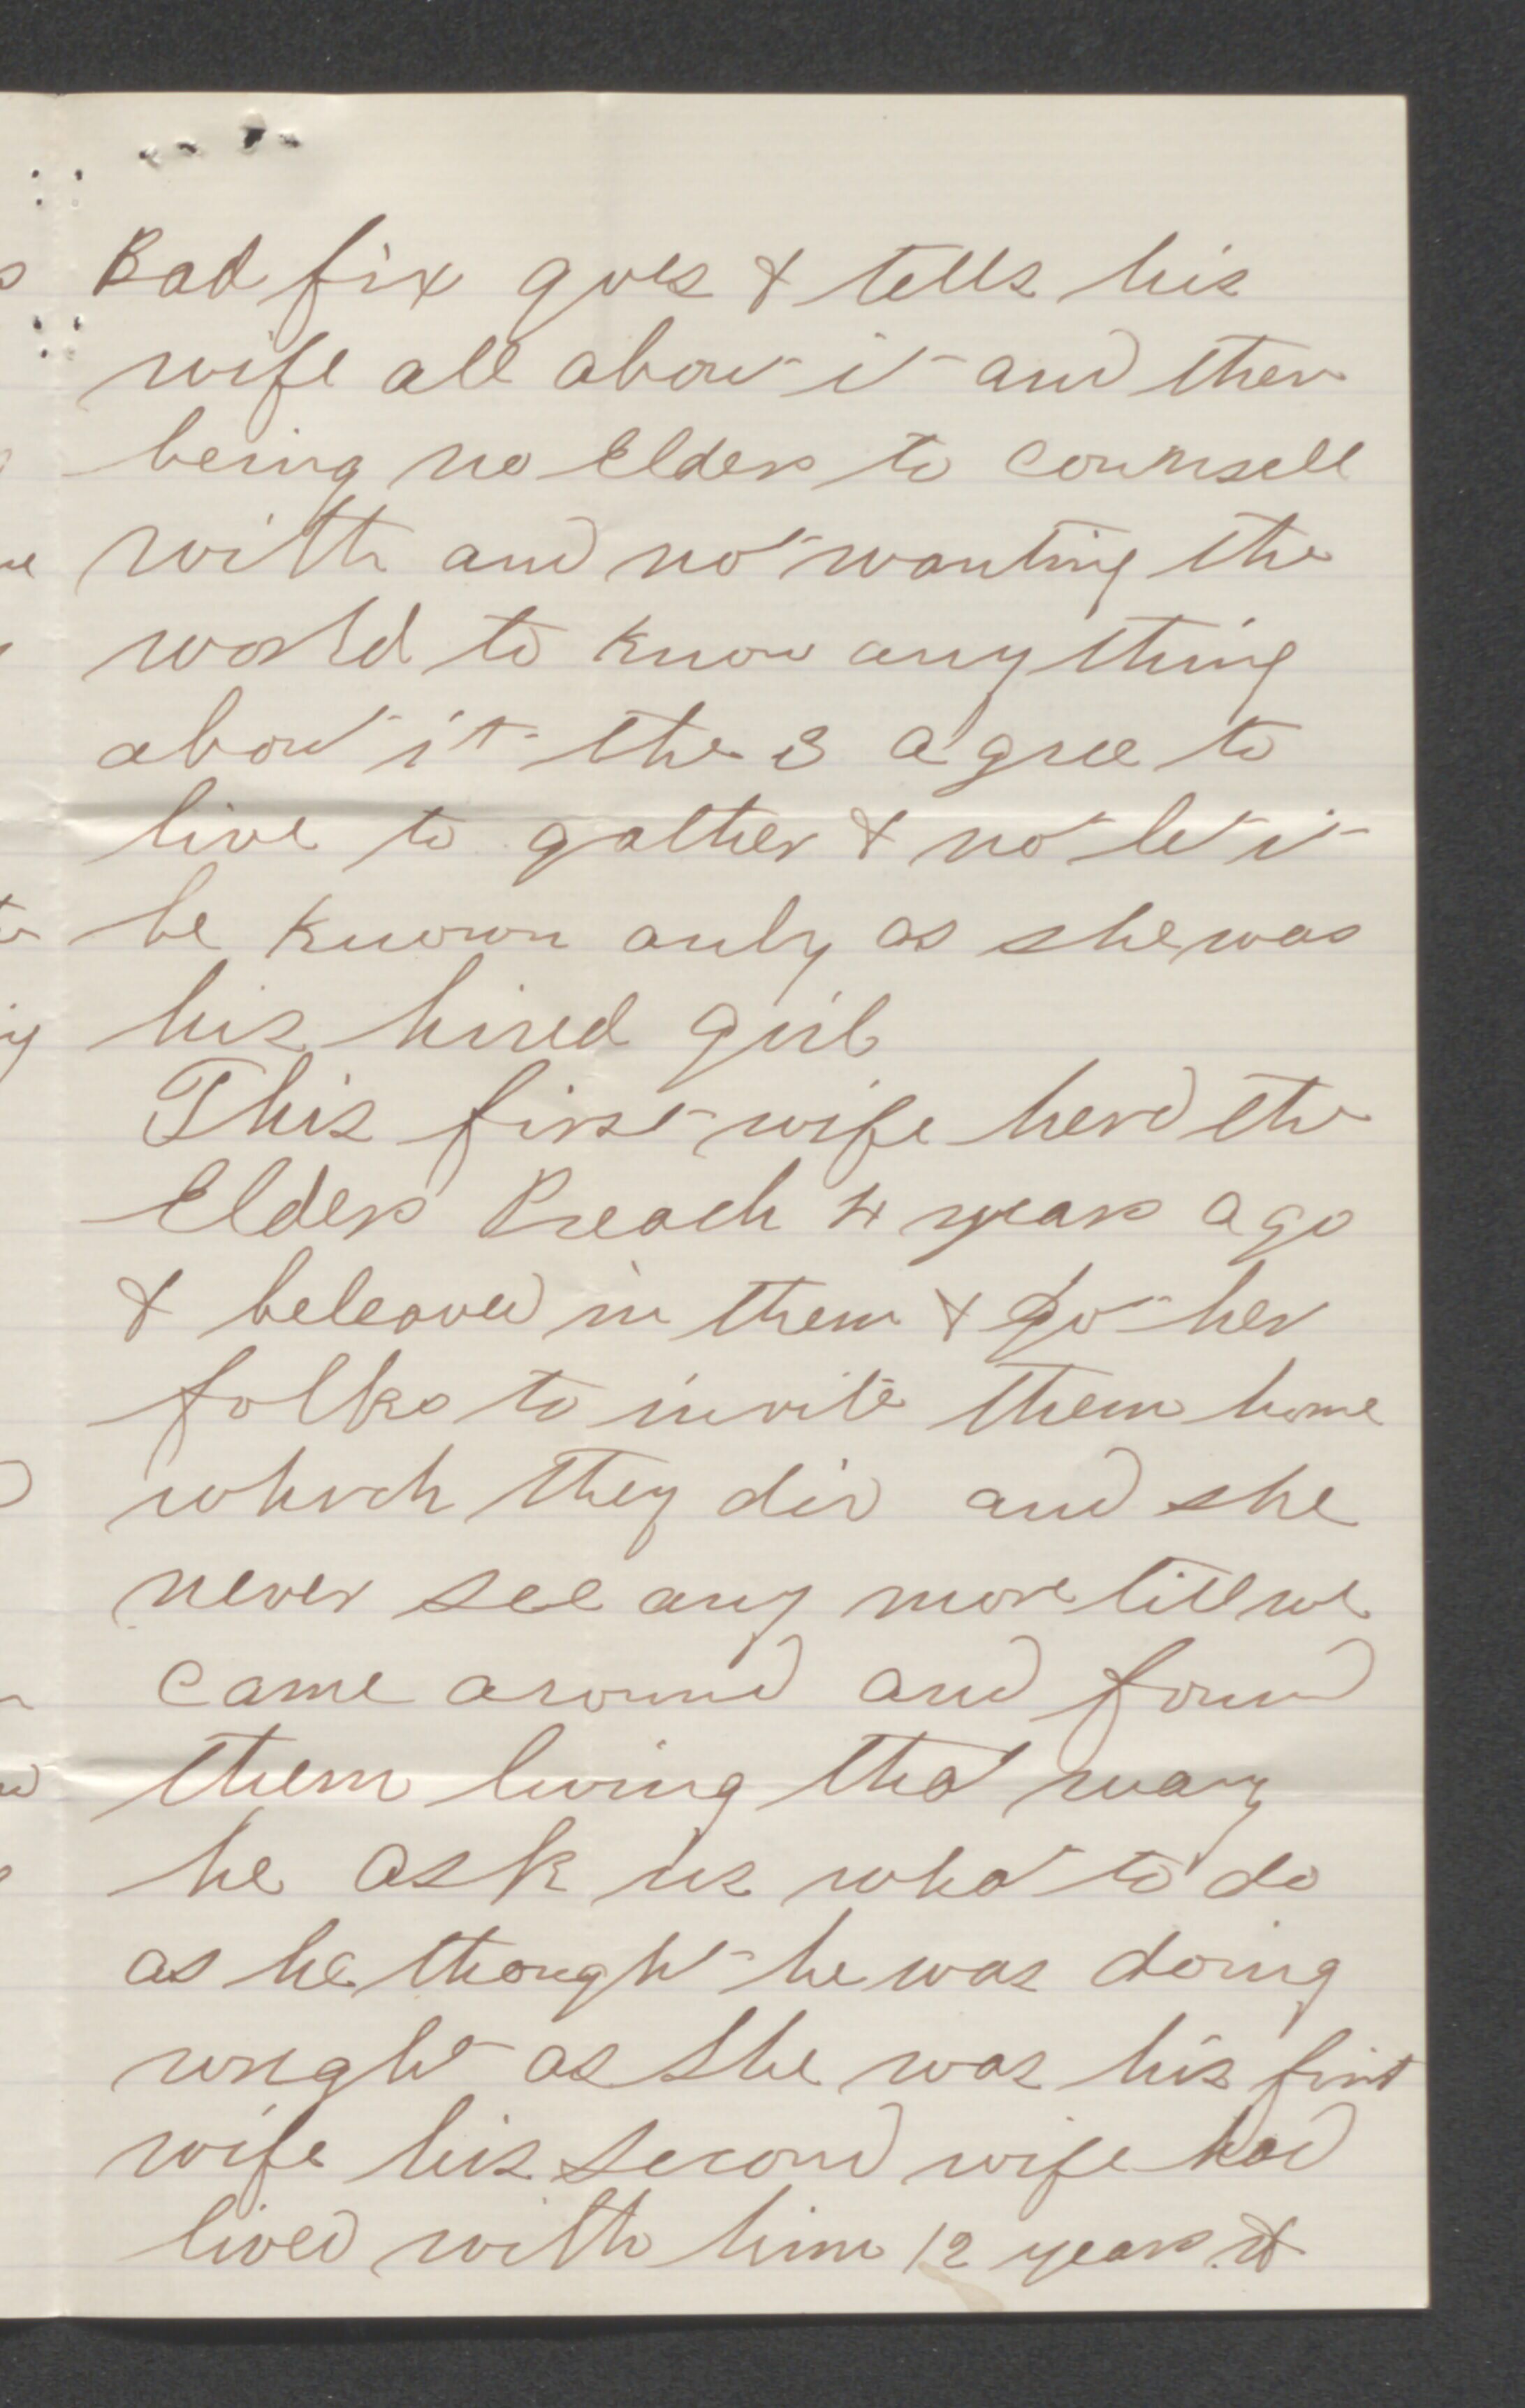 Bad fix goes & tells his
wife all about it and ther
being no Elders to counsell
with and not wanting the
world to know any thing
about it the 3 agree to
live to gather & not let it
be known only as she was
his hired girl
This first wife herd the
Elders Preach 4 years ago
& beleaved in them & got her
folks to invite them home
which they did and she
never see any more till we
came around and found
them living that way
he ask us what to do
as he thought he was doing
wright as she was his first
wife his second wife had
lived with him 12 years &